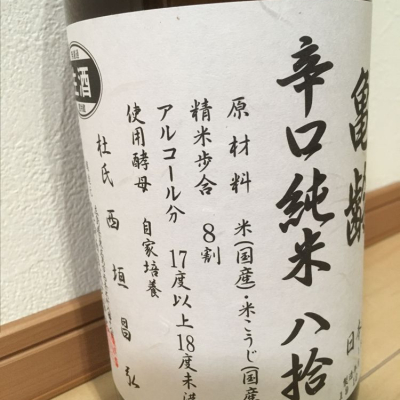 亀齢
辛口純米 八拾
原材料 米(国産)・米こうじ(国産
精米歩合 8割
アルコール分 17度以上18度未満
使用酵母 自家培養
杜氏 西垣昌弘
生酒